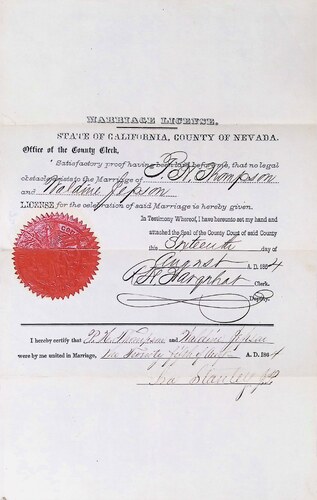 MARRIAGE LICENSE.
STATE OF CALIFORNIA, COUNTY OF NEVADA.
Office of the County Clerk,
Satisfactory proof having been before me, that no legal
obstacle exists to the Marriage of Thompson
and Jepson
LICENSE for the celebration of said Marriage is hereby given.
In Testimony Whereof, I have hereunto set my hand and
attached the Seal of the County Court of said County
this day of
August A. D. 1864
Clerk.
Deputy.
I hereby certify that P. H. Thompson and
were by me united in Marriage, A. D. 1864